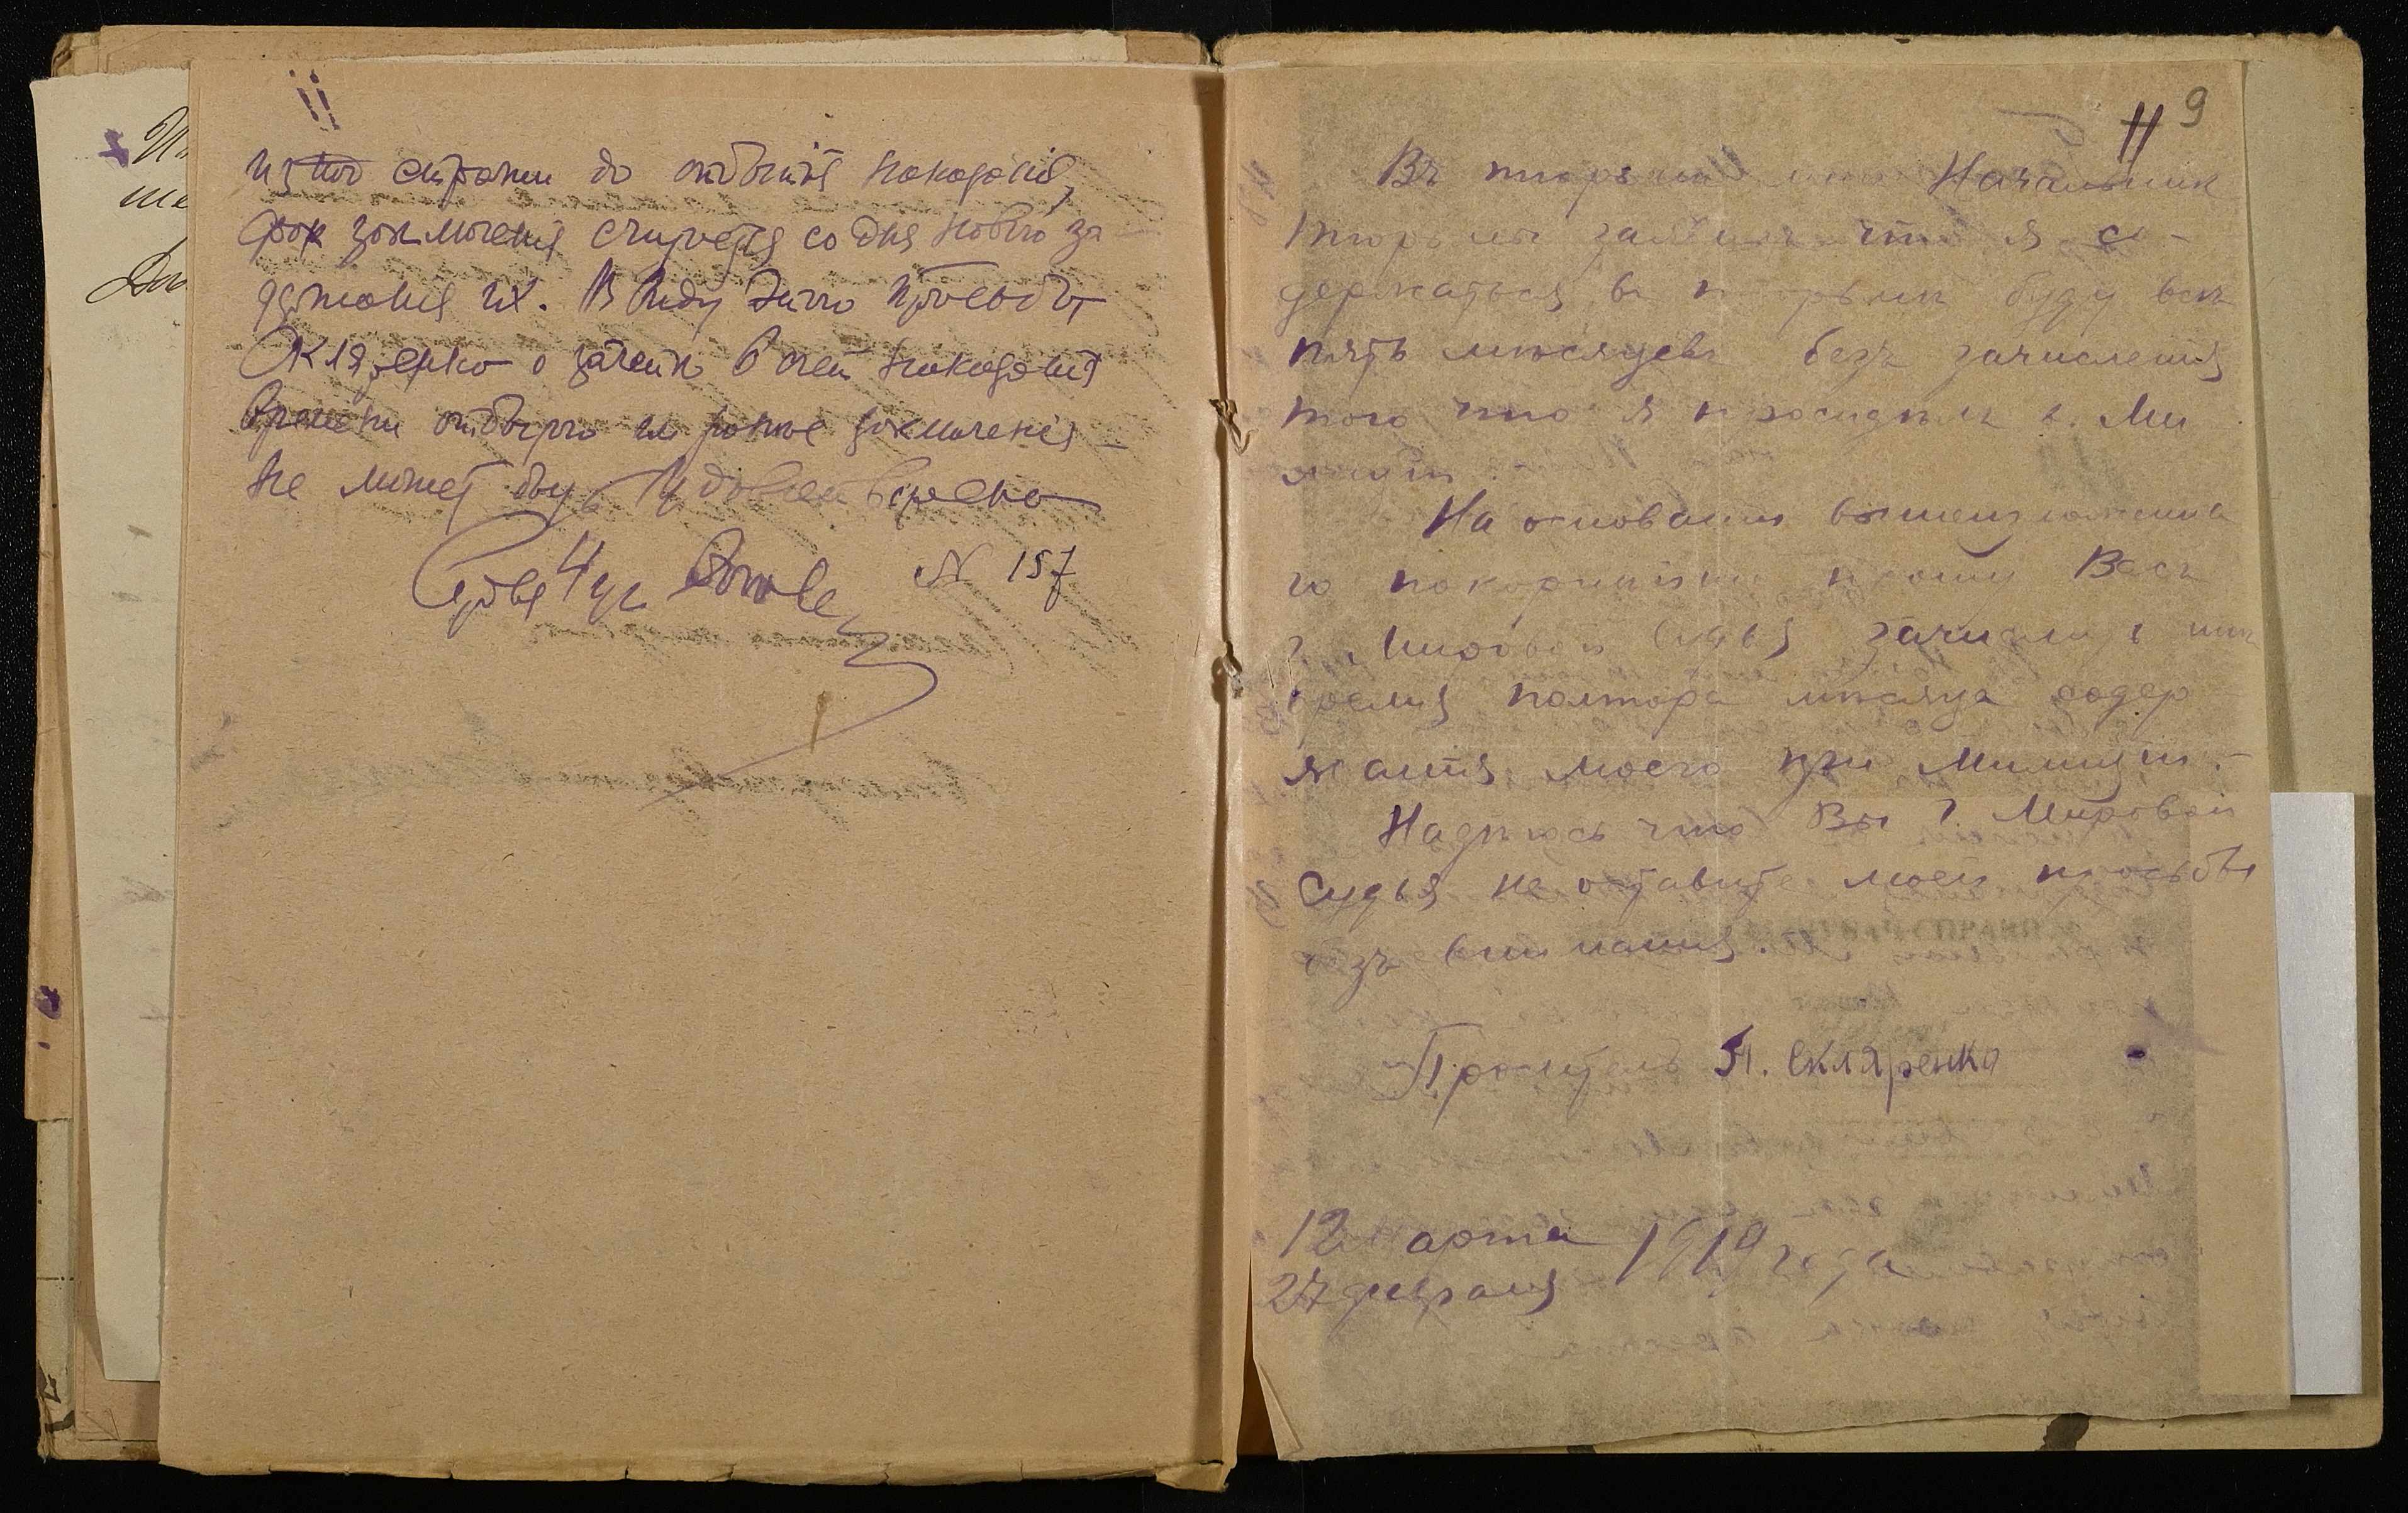 из под стражи до отбытія наказанія,
срок заключенія считается со дня новаго за-
держанія их. В виду этого просьба
Скляренко о зачете в счет наказанія
времени отбытаго им ранее заключенія -
не может быть удовлетворено
N 157
9
11
Въ тюрьме Начальник
тюрьмы заявил что я со-
держаться въ тюрьмѣ буду всѣ
пять мѣсяцевъ безъ зачисленія
того что я просидѣлъ в Ми
лиціи.
На основаніи вышеизложенна
го покорнѣйше прошу Васъ
г. Мировой Судья зачислить мнѣ
время полтора мѣсяца содер
жанія моего при милиціи.-
Надѣюсь что Вы г. Мировой
Судья не оставите моей просьбы
безъ вниманія.
Проситель П. Скляренко
12 марта 1919 года
27 февраля